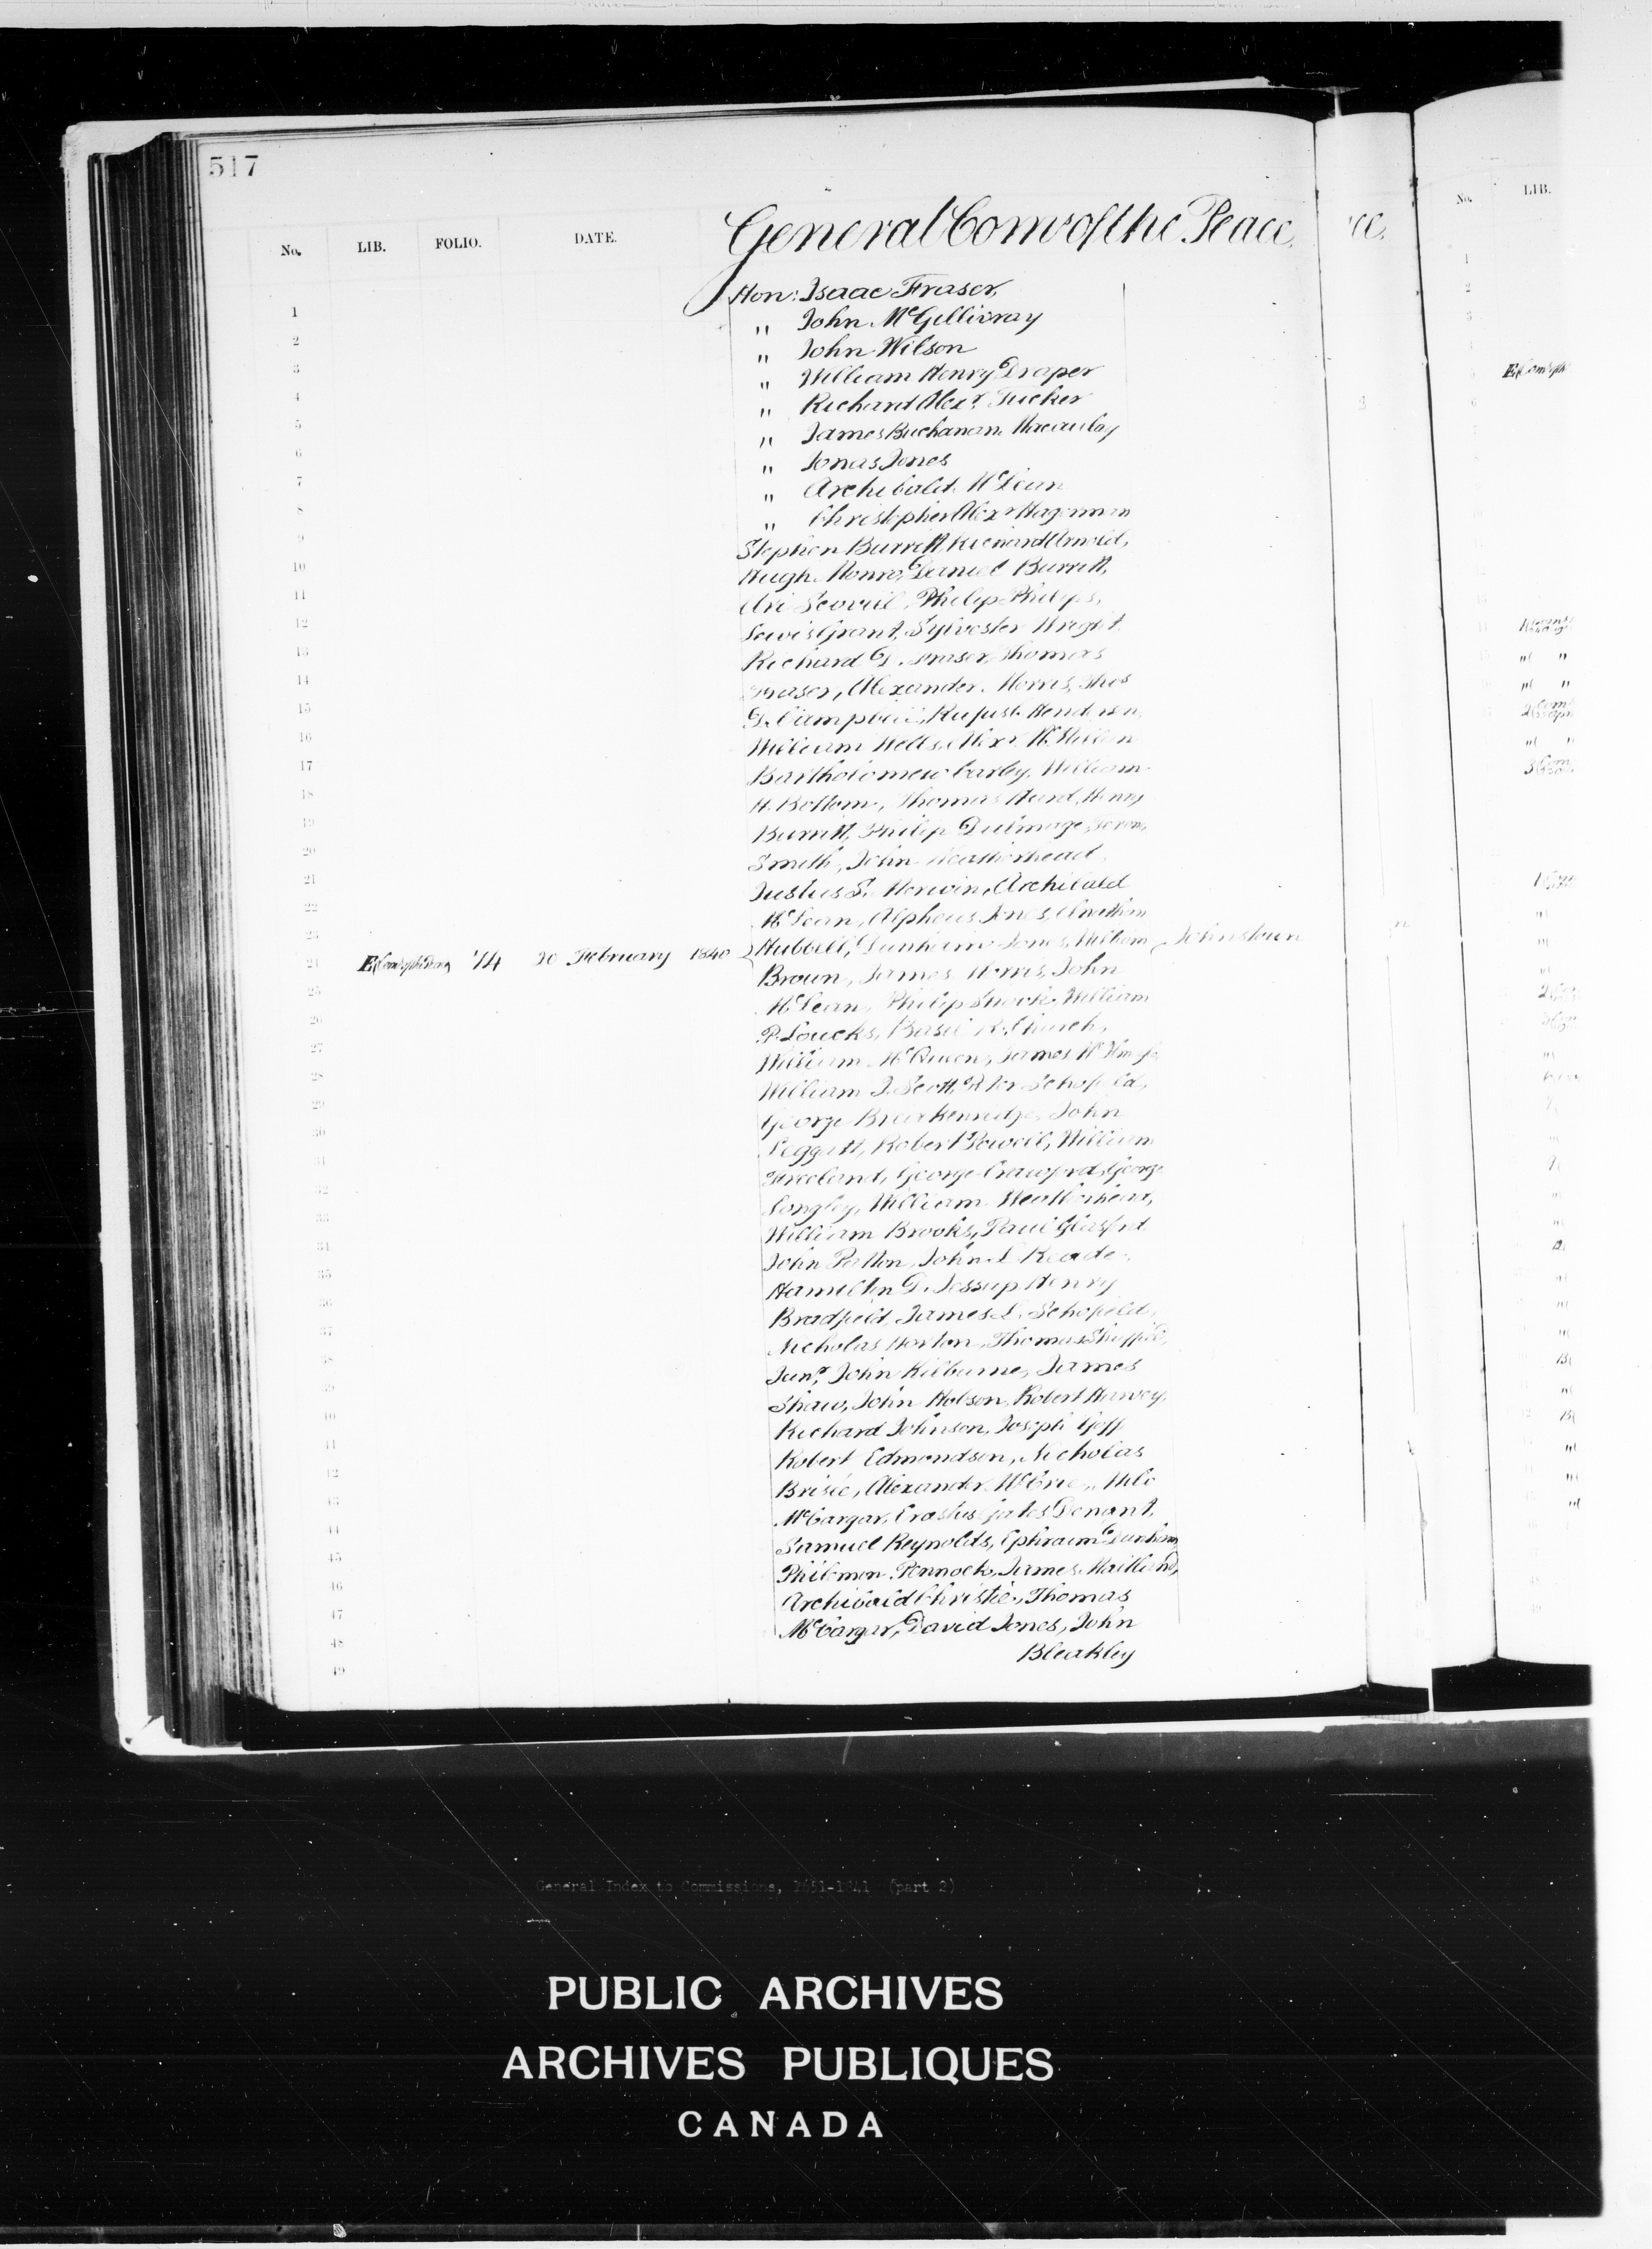 517
No. LIB. FOLIO. DATE. General Com of the Peace.
Hon: Isaac Fraser,
" John McGillivray
" John Wilson
" William Henry Draper
" Richard Alexr. Tucker
" James Buchanan Macaulay
" Jonas Jones
" Archibald McLean
" Christopher Alexr Hagerman
Stephen Burritt, Richard Arnold,
Hugh Monro, Daniel Burritt,
Ari Scovil, Philip Philips,
Lewis Grant, Sylvester Wright
Richard D. Fraser, Thomas
Fraser, Alexander Morris, Thos
D. Campbell, Rufus Henderson,
William Wells, Alexr McMillan
Bartholomew Carley, William
H. Bottom, Thomas Hurd, Henry
Burritt, Philip Dulmage,
Smith, John Weatherhead
Justus S. Merwin, Archibald
McLean, Alpheus Jones,
Hubbell, Dunham Jones, William Johnstown
E 74 20 February 1840
Brown, James Morris, John
McLean, Philip Shook, William
P. Loucks, Basil R. Church,
William McQueen, James
William J. Scott, Peter Schofield,
George Breakenridge, John
Leggatt, Robert Powell, William
Freeland, George Crawford, George
Longley, William Weatherhead,
William Brooks, Paul Glasford
John Patton, John L. Reade
Hamilton D. Jessup Henry
Bradfield, James L. Schofield,
Nicholas Horton, Thomas
Junr, John Kilburne, James
Shaw, John Hobson, Robert Harvey,
Richard Johnson, Joseph Goff
Robert Edmondson, Nicholas
Brisée, Alexander Milo
McCargar, Erastus Gates Denant,
Samuel Reynolds, Ephraim Dunham,
Philemon Pennock, James Maitland,
Archibald Christie, Thomas
McCargar, David Jones, John
Bleakley
No. LIB.
General Index to Commissions, 1651-1841 (part 2)
PUBLIC ARCHIVES
ARCHIVES PUBLIQUES
CANADA